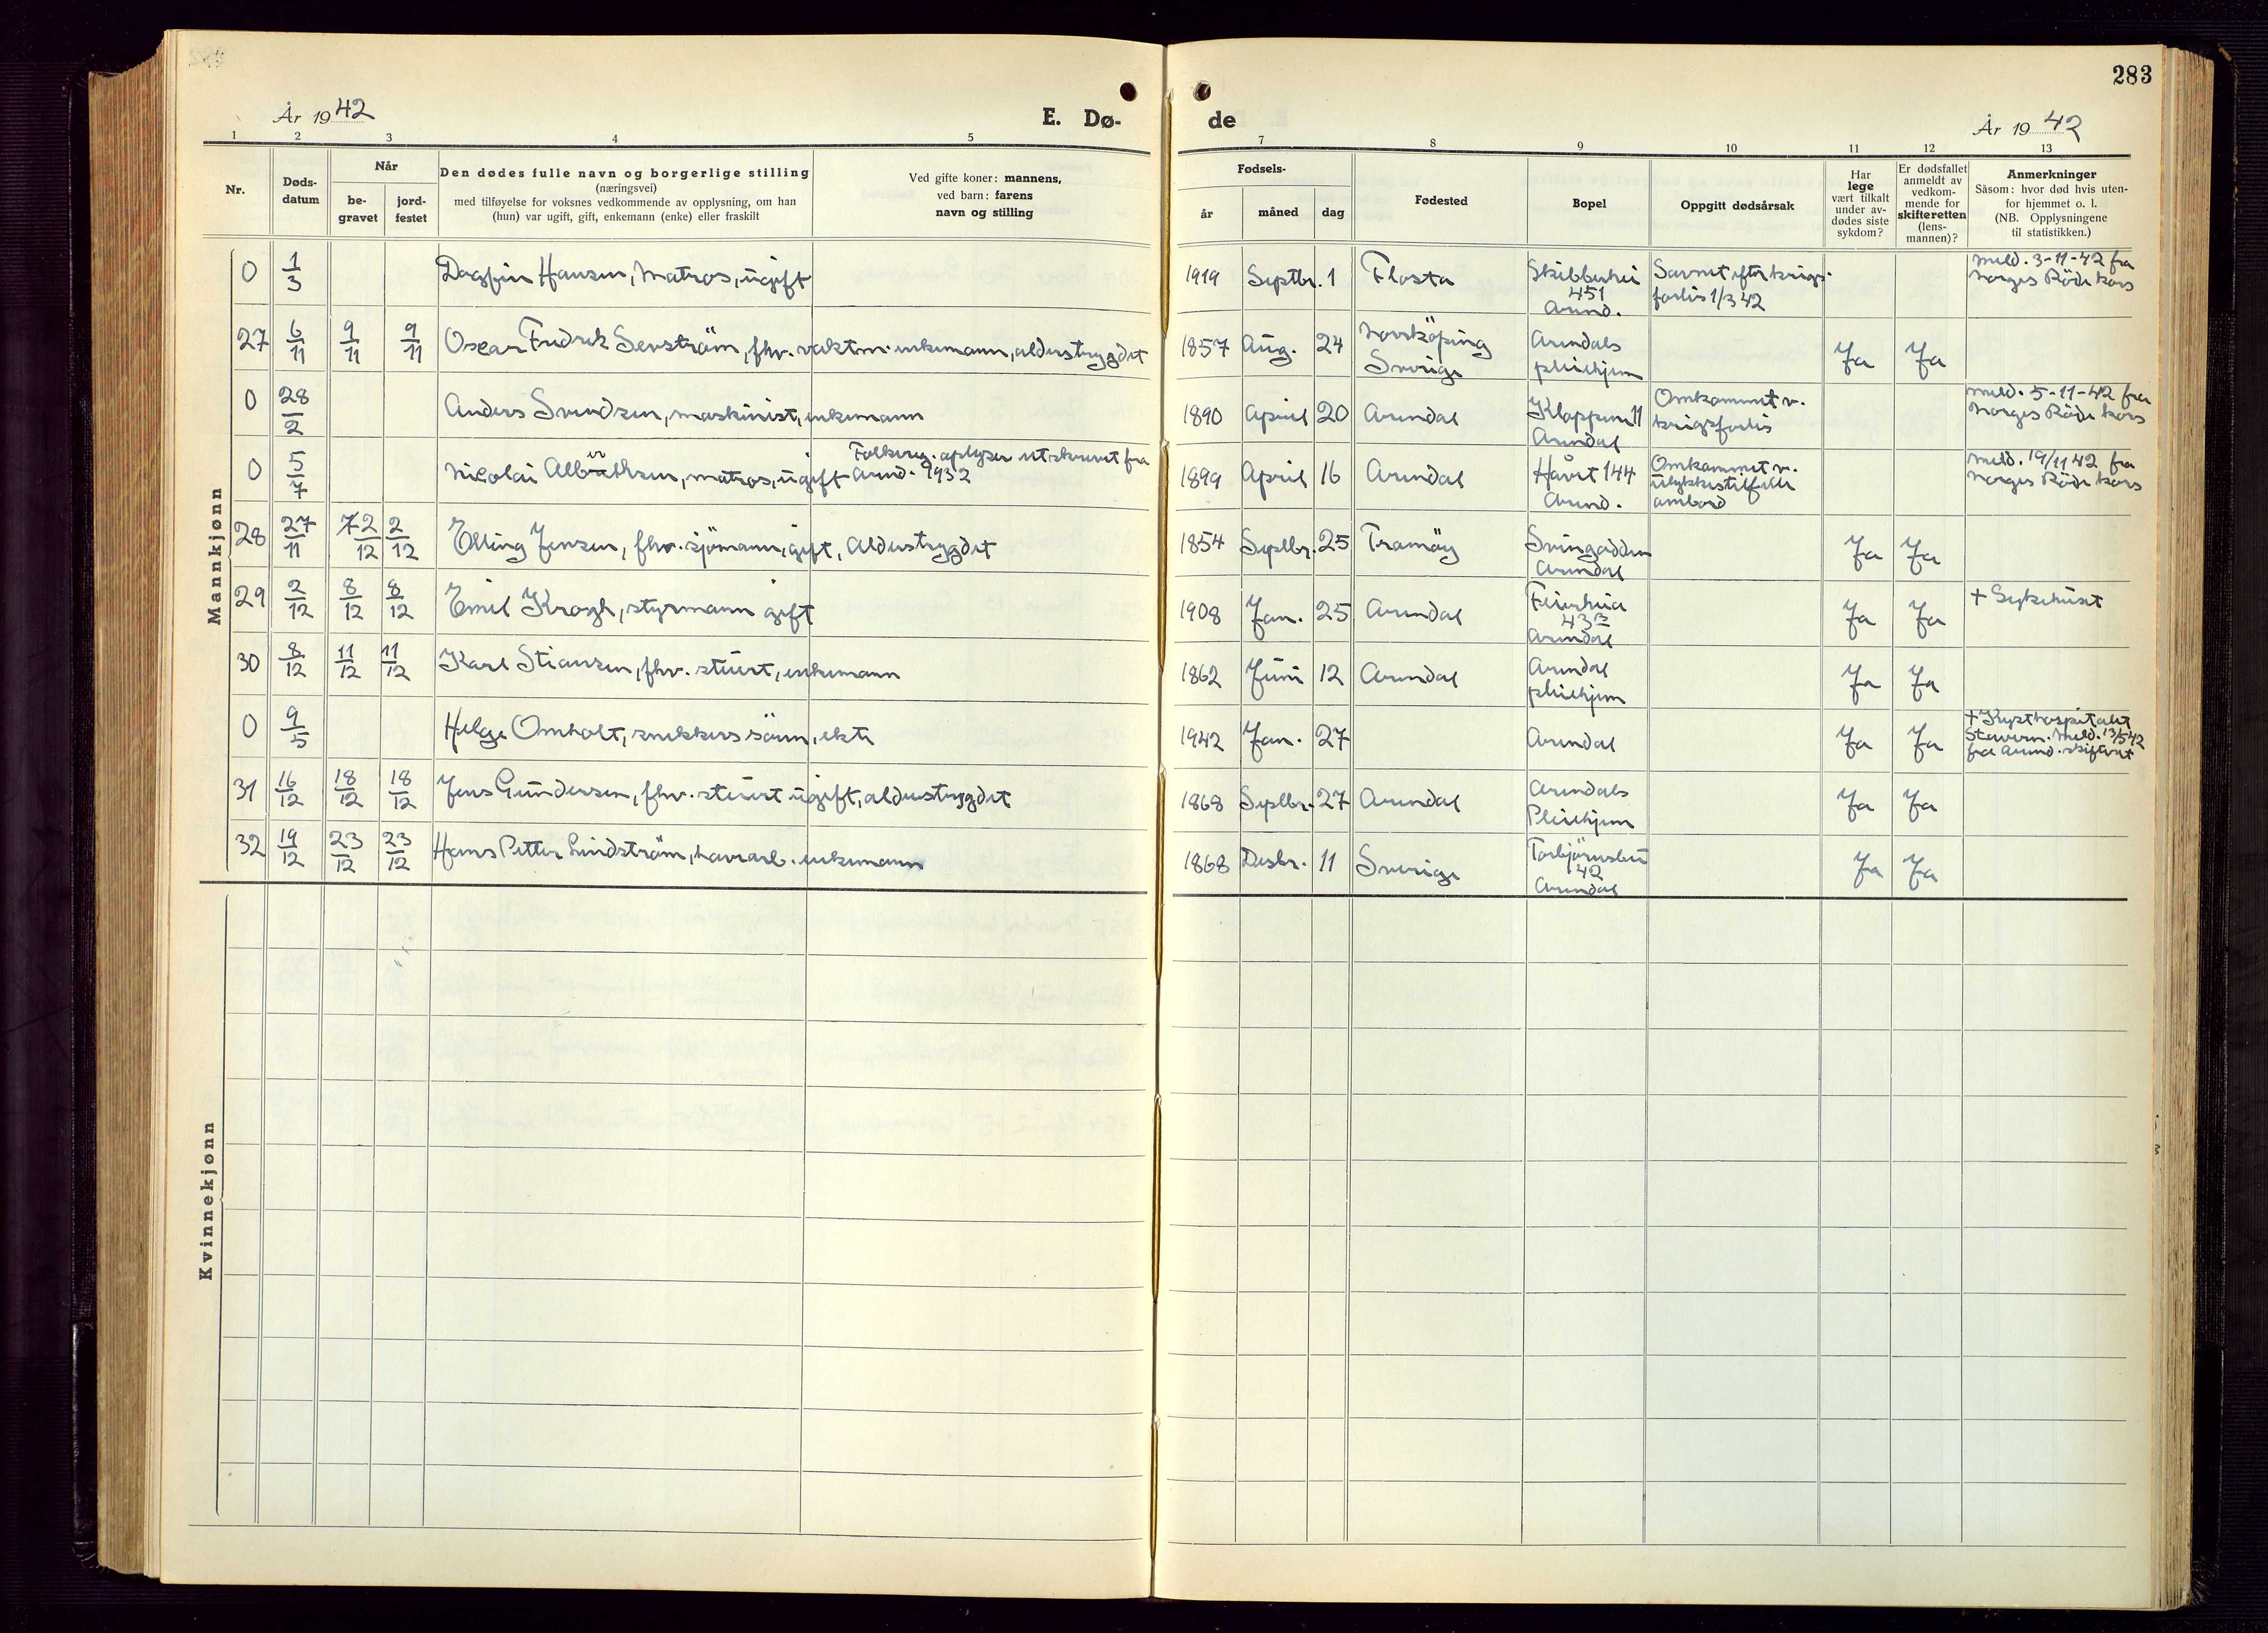 283
År 1942
E. Dø-
de
År 1942
1 2 3 4 5
7 8 9 10 11 12 13
Nr.
Døds-
datum
Når
be-
gravet
jord-
festet
Den dødes fulle navn og borgerlige stilling
(næringsvei)
med tilføyelse for voksnes vedkommende av opplysning, om han
(hun) var ugift, gift, enkemann (enke) eller fraskilt
Ved gifte koner: mannens,
ved barn: farens
navn og stilling
Fødsels-
år
måned
dag
Fødested
Bopel
Oppgitt dødsårsak
Har
lege
vært tilkalt
under av-
dødes siste
sykdom?
Er dødsfallet
anmeldt av
vedkom-
mende for
skifteretten
(lens-
mannen)?
Anmerkninger
Såsom: hvor død hvis uten-
for hjemmet o. l.
(NB. Opplysningene
til statistikken.)
Mannkjønn
0 1/3 Dagfin Hansen, Matros, ugift
1919 Septbr. 1 Flosta
Skibbuhei
451
Arend.
Savnet efter krigs-
forlis 1/3 42
Meld. 3-11-42 fra
Norges Röde kors
27 6/11 9/11 9/11 Oscar Fredrek Senström, fhv. vaktm. enkemann, alderstrygdet
1857 Aug. 24
Norrköping
Sverige
Arendals
pleiehjem
Ja Ja
0 28/2 Anders Svendsen, maskinist, enkemann
1890 April 20 Arendal
Kloppene 11
Arendal
Omkommet v.
krigsforlis
Meld. 5-11-42 fra
Norges Röde kors
0 5/7 Nicolai Albrethsen, matros, ugift
Folkereg. oplyser utskrevet fra
Arend. 1932
1899 April 16 Arendal
Håvet 144
Arend.
Omkommet v.
ulykkestilfelle
ombord
Meld. 19/11 42 fra
Norges Röde kors
28 27/11 2/12 2/12 Elling Jensen, fhv. sjömann, gift, Alderstrygdet
1854 Septbr. 25 Tromöy
Svingodden
Arendal
Ja Ja
29 2/12 8/12 8/12 Emil Krogh, styrmann gift
1908 Jan. 25 Arendal
Feierheia
43 B
Arendal
Ja Ja
+ Sykehuset
30 8/12 11/12 11/12 Karl Stiansen, fhv. stuert, enkemann
1862 Juni 12 Arendal
Arendal
pleiehjem
Ja Ja
0 9/5 Helge Omholt, snekkers sönn, ekte
1942 Jan. 27
Arendal
Ja Ja
+ Kysthospitalet
Stavern. Meld. 13/5 42
fra Arend. skifteret
31 16/12 18/12 18/12 Jens Gundersen, fhv. stuert ugift, alderstrygdet
1868 Septbr. 27 Arendal
Arendals
Pleiehjem
Ja Ja
32 19/12 23/12 23/12 Hans Petter Lindström, havnarb. enkemann
1868 Desbr. 11 Sverige
Torbjörnsbu
42
Arendal
Ja Ja
Kvinnekjønn